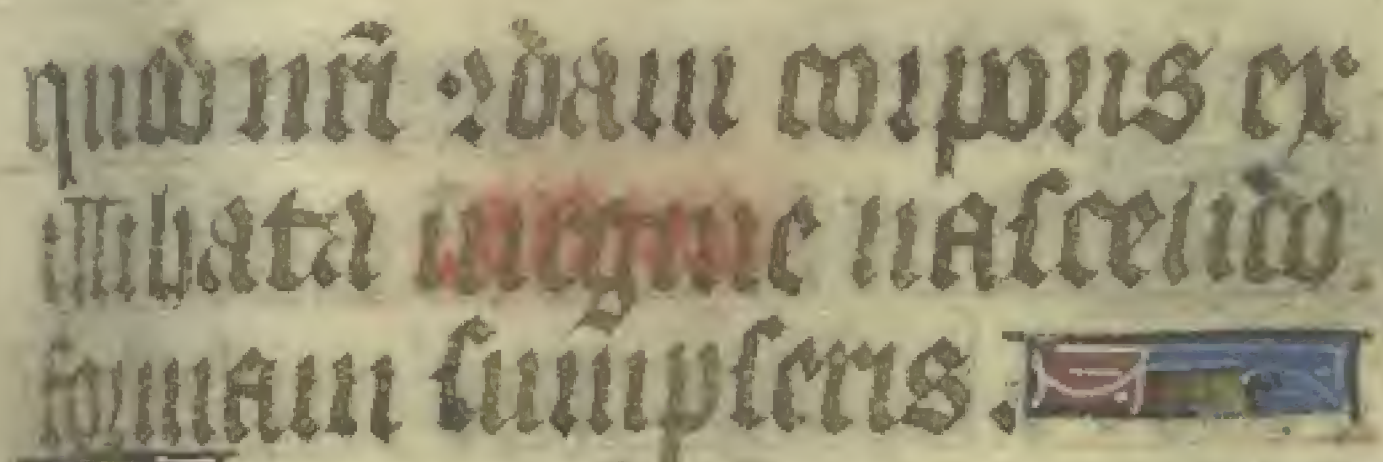 quod nr̄i ꝯdam corporis ex
illibata uirgine naſcendo.
formam ſumpſeris.